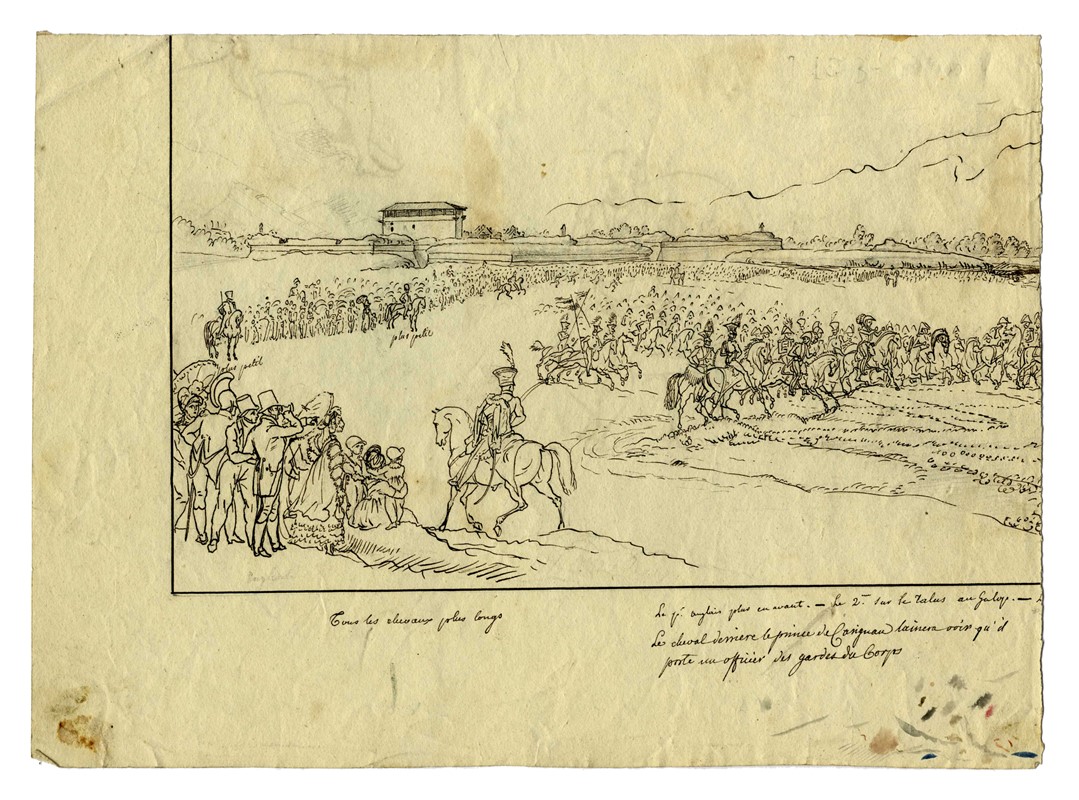 plus petit
plus petit
Tous les chevaux plus longs
Le 1er anglais plus en avant. — Le 2e sur le talus au Galop. —
Le cheval derriere le prince de Carignan laissera voir qu'il
porte un officier des gardes du Corps